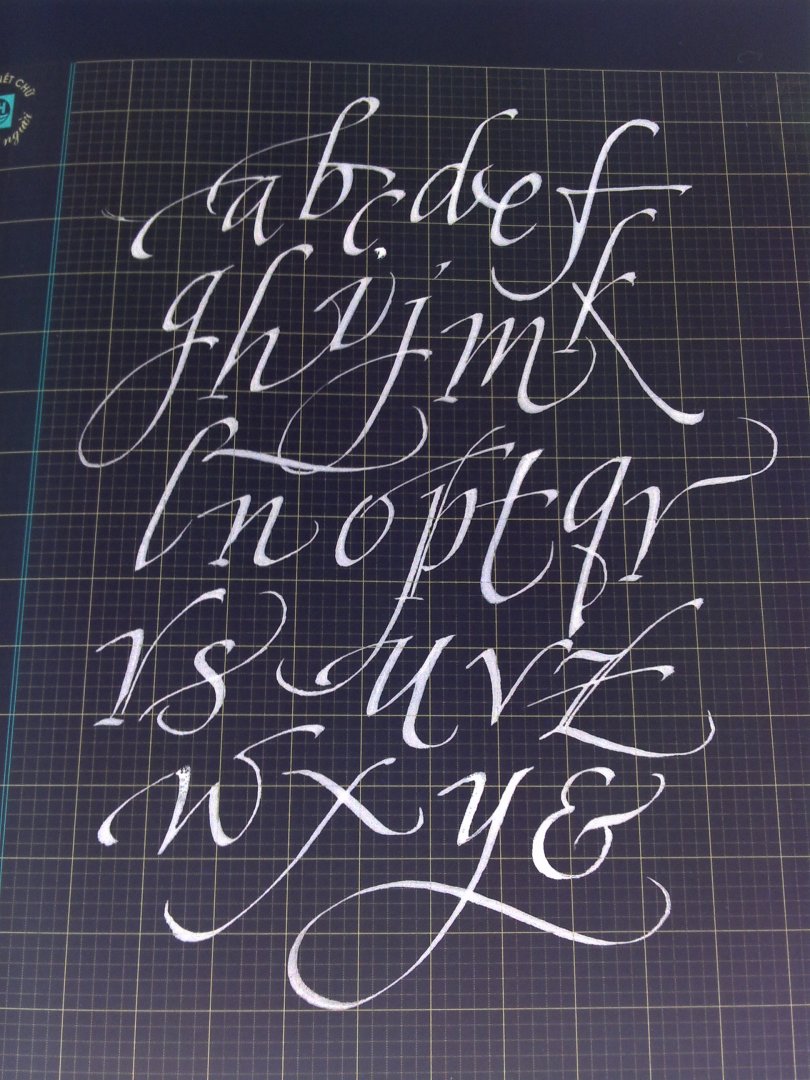 IẾT CHỮ
a b c d e f
g h i j m k
l n o p t q r
r s u v z
w x y &